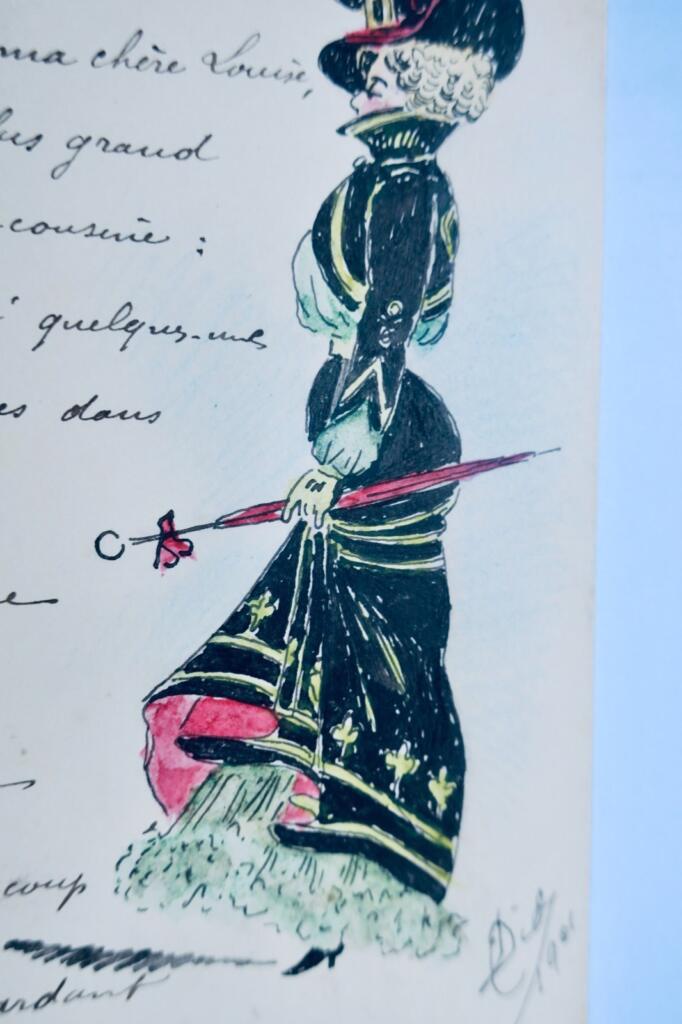 ma chère Louise,
grand
cousine :
quelques-unes
es dans
e
coup
ardant